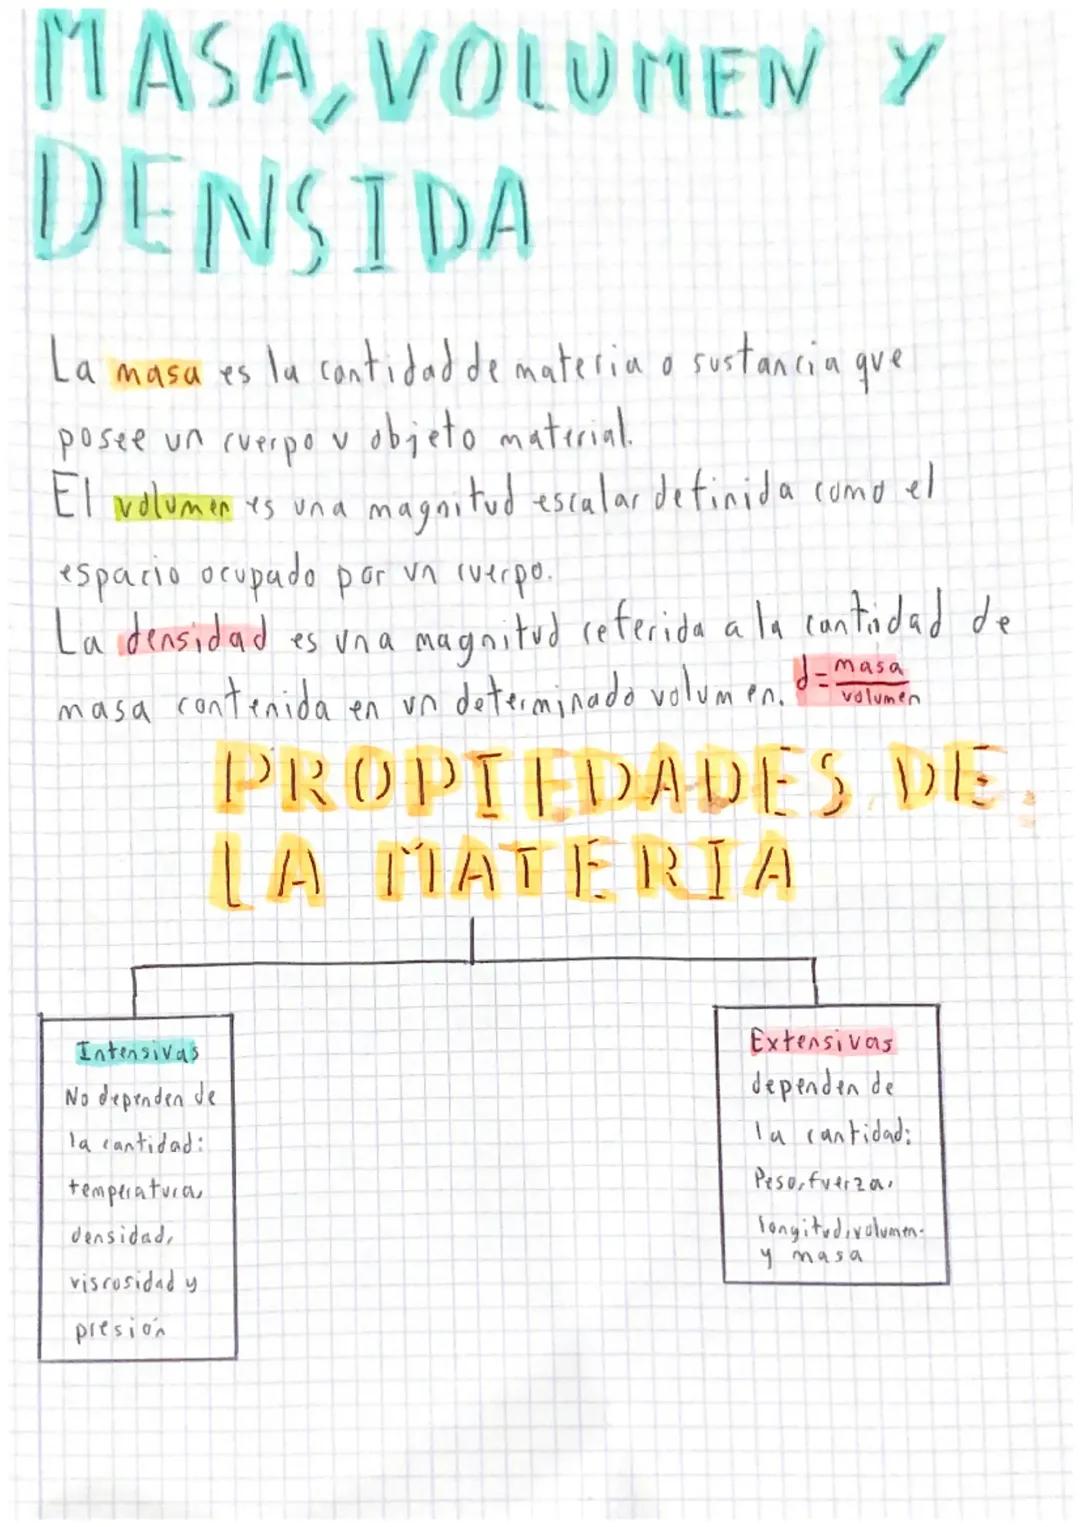 MASA, VOLUMEN Y
DENSIDA
La masa es la cantidad de materia o sustancia que
posee un cuerpo u objeto material.
El volumen es una magnitud escalar definida como el
espacio ocupado por un cuerpo.
La densidad es una magnitud referida a la cantidad de
masa contenida en un determinado volumen. d = masa
volumen
PROPIEDADES DE
LA MATERIA
Intensivas
No dependen de
la cantidad:
temperatura,
densidad,
viscosidad y
presión
Extensivas
dependen de
la cantidad:
Peso, fuerza,
longitud, volumen
y masa